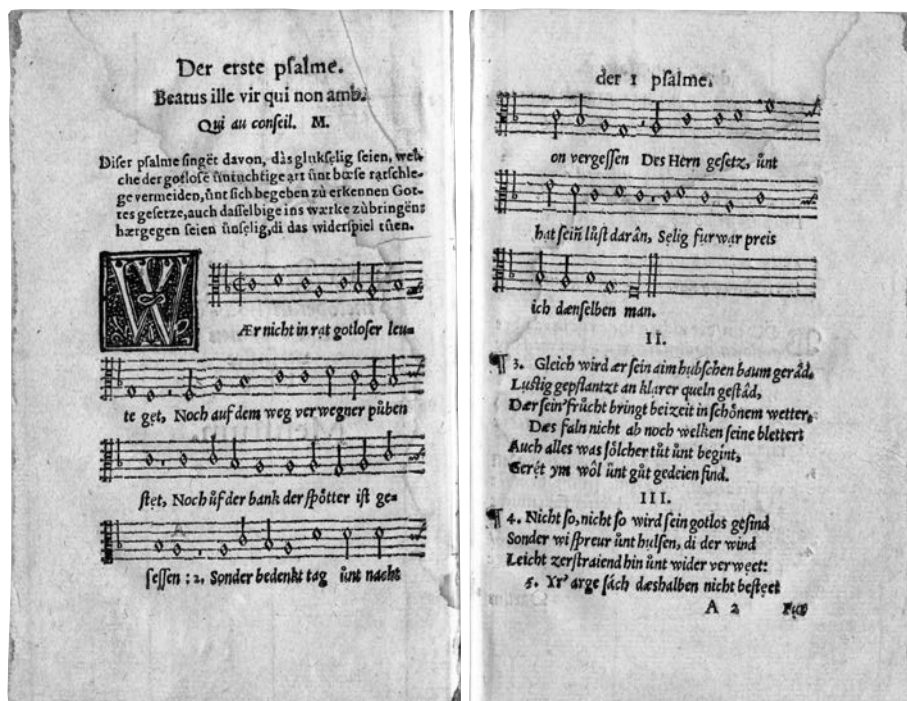 Der erste psalme.
Beatus ille vir qui non amb.
Qui au conseil. M.
Diser psalme singët davon, dàs glukselig seien, wel-
che der gotlosẽ ûntuchtige art ûnt bœse ratschle-
ge vermeiden, ûnt sich begeben zù erkennen Got-
tes gesetze, auch dasselbige ins wærke zùbringën:
hærgegen seien ûnsęlig, di das widerspiel tûen.
WÆr nicht in rąt gotloser leu-
te get, Noch auf dem weg verwegner pùben
stęt, Noch ůf der bank der spŏtter ist ge-
sessen : 2, Sonder bedenkt tag ûnt nacht
der 1 psalme.
on vergessen Des Hern gesetz, ûnt
hat sein̄ lûst darân, Sęlig furwar preis
ich dænselben man.
II.
¶ 3. Gleich wird ær sein aim hubschen baum gerâd,
Lustig gepflantzt an klarer queln gestâd,
Dær sein' frûcht bringt beizeit in schônem wetter,
Dæs faln nicht ab noch welken seine blettert
Auch alles was sôlcher tût ûnt begint,
Gerêt ym wôl ûnt gût gedeien find.
III.
¶ 4. Nicht so, nicht so wird sein gotlos gesind
Sonder wi spreur ûnt hulsen, di der wind
Leicht zerstraiend hin ûnt wider verweet:
5. Yr' arge sách dæshalben nicht besteet
A 2